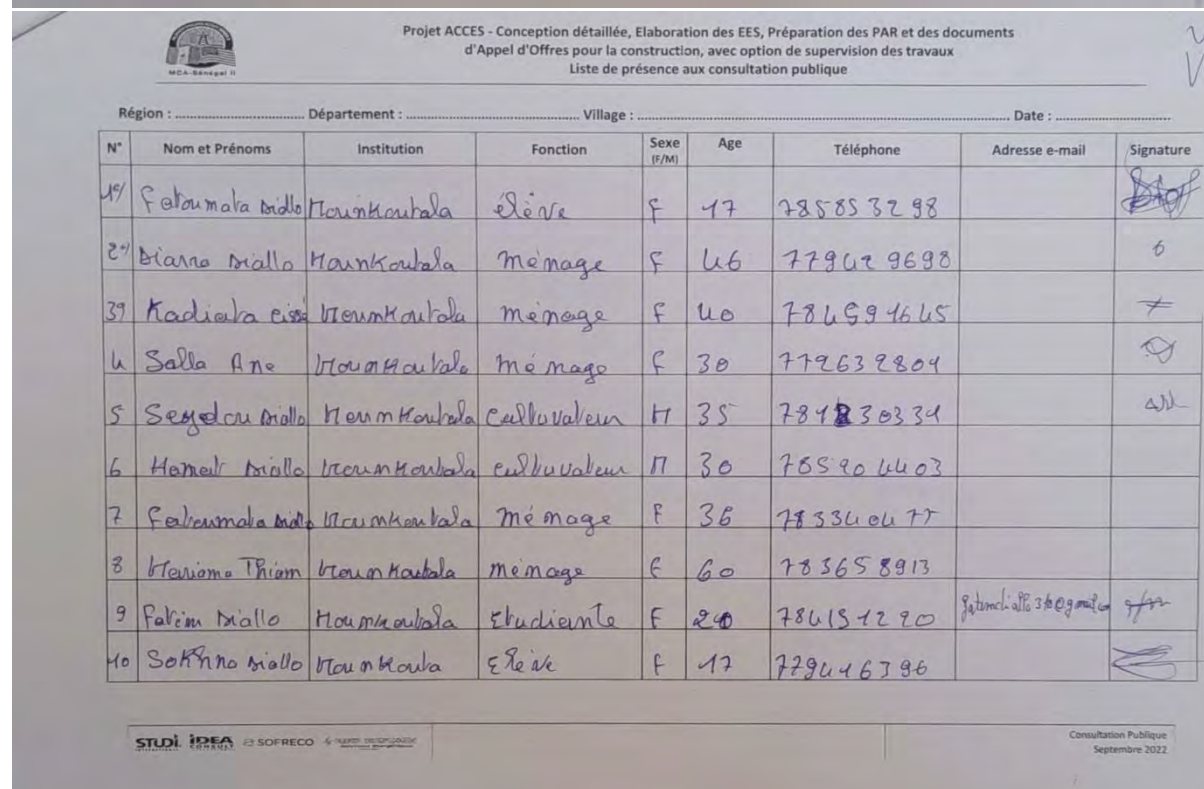 MCA-Sénégal II
Projet ACCES - Conception détaillée, Elaboration des EES, Préparation des PAR et des documents
d'Appel d'Offres pour la construction, avec option de supervision des travaux
Liste de présence aux consultation publique
Région : ................................ Département : ................................ Village : ................................ Date : ................................
N° Nom et Prénoms Institution Fonction Sexe (F/M) Age Téléphone Adresse e-mail Signature
1°/ Fatoumata Diallo Hounkoubala élève F 17 785853298
2°/ Diarra Diallo Hounkoubala ménage F 46 779429698
3°/ Kadiata Cissé Hounkoubala ménage F 40 784591645
4 Salla Ane Hounkoubala ménage F 30 772632804
5 Seydou Diallo Hounkoubala Cultuvateur M 35
6 Hamet Diallo Hounkoubala cultuvateur M 30 785904403
7 Fatoumata Diallo Hounkoubala ménage F 36
8 Mariama Thiam Hounkoubala ménage F 60 783658913
9 Fatim Diallo Hounkoubala Etudiante F 20 784151220
10 Sokhna Diallo Hounkouba Elève F 17 779416396
STUDI INTERNATIONAL IDEA CONSULT SOFRECO
Consultation Publique
Septembre 2022